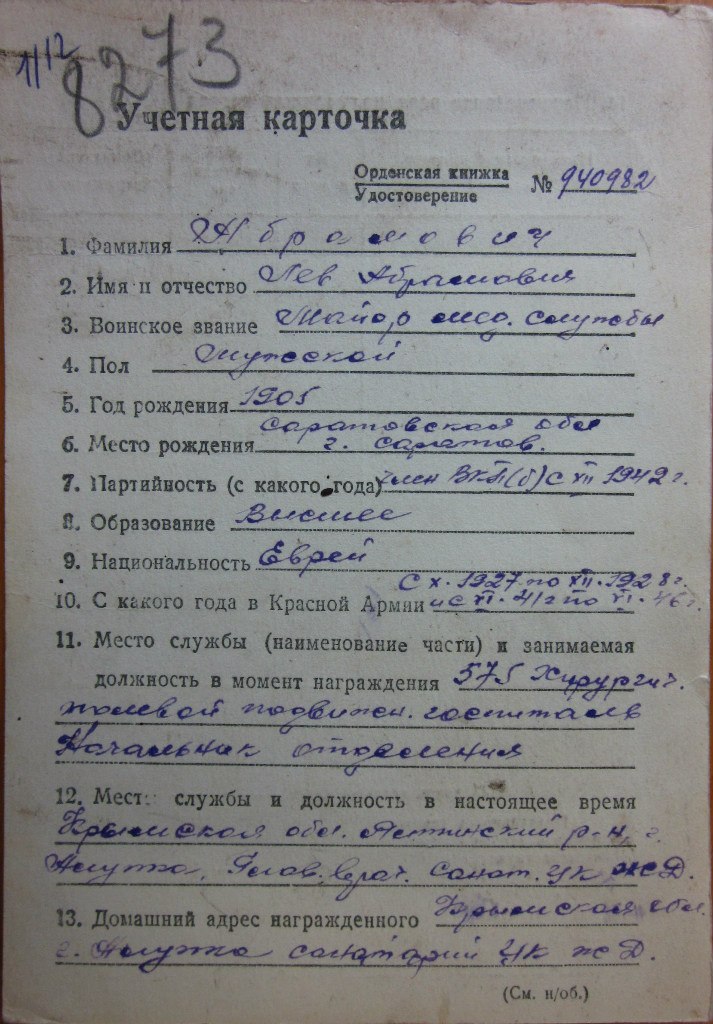 1/12
8273
Учетная карточка
Орденская книжка
Удостоверение № 940982
1. Фамилия Абрамович
2. Имя и отчество Лев Абрамович
3. Воинское звание Майор мед. службы
4. Пол Мужской
5. Год рождения 1905
Саратовская обл
6. Место рождения г. Саратов.
7. Партийность (с какого года) член ВКП(б) с VII 1942 г.
8. Образование Высшее
9. Национальность Еврей
с X. 1927 по XII. 1928 г.
10. С какого года в Красной Армии и с VI. 41 г по VI. 46 г.
11. Место службы (наименование части) и занимаемая
должность в момент награждения 575 Хирургич.
полевой подвижн. госпиталь
Начальник отделения
12. Место службы и должность в настоящее время
Крымская обл. Ялтинский р-н, г.
Алупка, Глав. врач. Санат. ЦК ЖД.
13. Домашний адрес награжденного Крымская обл.
г. Алупка санаторий ЦК ЖД.
(См. н/об.)